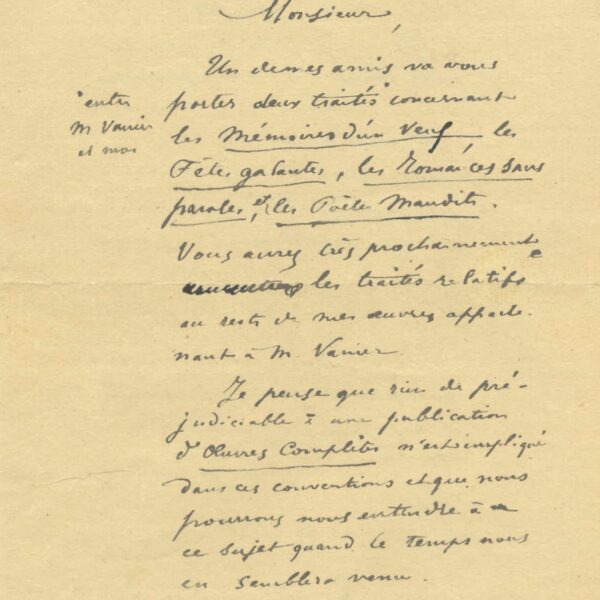 Monsieur,
Un de mes amis va vous
porter deux traités* concernant
* entre
M Vanier
et moi
les Mémoires d'un Veuf, les
Fêtes galantes, les Romances sans
paroles, et les Poètes Maudits.
Vous aurez très prochainement
les traités relatifs
au reste de mes œuvres apparte-
nant à M. Vanier.
Je pense que rien de pré-
judiciable à une publication
d'Œuvres Complètes n'est impliqué
dans ces conventions et que nous
pourrons nous entendre à
ce sujet quand le temps nous
en semblera venu.